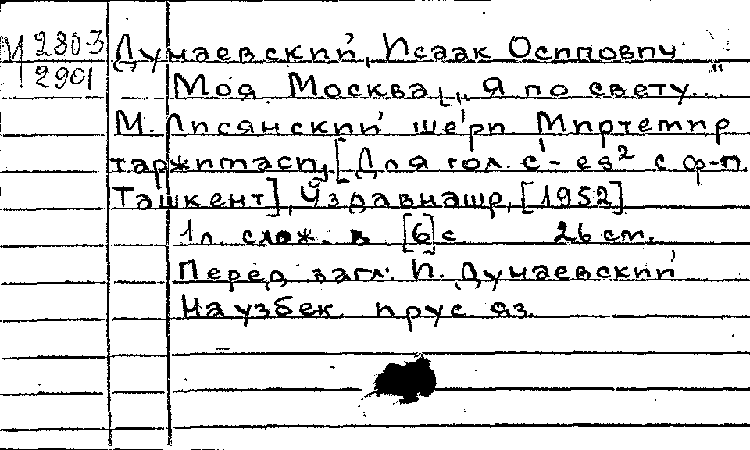 М 280-3
2901
Дунаевский, Исаак Осипович
Моя Москва. [„Я по свету..."
М. Лисянский ше'ри. Миртемир
таржимаси]. [Для гол. c¹-es² с ф-п.
Ташкент], Уздавнашр, [1952]
1 л. слож. в [6] с 26 см.
Перед загл.: И. Дунаевский
На узбек. и рус. яз.